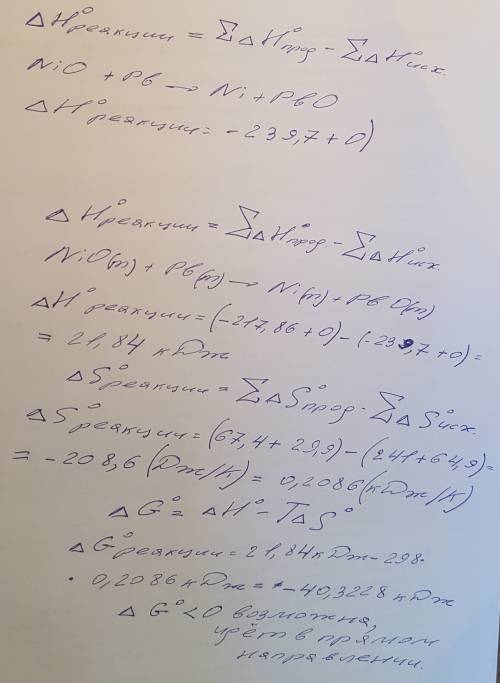 ΔH°реакции = ΣΔH°прод - ΣΔH°исх.
NiO + Pb → Ni + PbO
ΔH°реакции = -239,7 + 0)
ΔH°реакции = ΣΔH°прод. - ΣΔH°исх.
NiO(т) + Pb(т) → Ni(т) + PbO(т)
ΔH°реакции = (-217,86 + 0) - (-239,7 + 0) =
= 21,84 кДж
ΔS°реакции = ΣΔS°прод. - ΣΔS°исх.
ΔS°реакции = (67,4 + 29,9) - (241 + 64,9) =
= -208,6 (Дж/К) = 0,2086 (кДж/К)
ΔG° = ΔH° - TΔS°
ΔG°реакции = 21,84 кДж - 298·
· 0,2086 кДж = -40,3228 кДж
ΔG° < 0 возможна,
идёт в прямом
направлении.